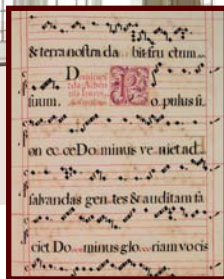 & terra nostra da bit fru ctum.
suum. Dominica
da Aduen
P o pulus si.
on ec ce Do minus ve niet ad
salvandas gen tes & auditam fa
ciet Do minus glo riam vocis